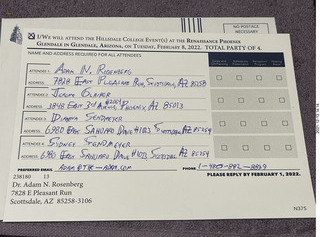 NO POSTAGE
NECESSARY
I/We will attend the Hillsdale College Event(s) at the Renaissance Phoenix
Glendale in Glendale, Arizona, on Tuesday, February 8, 2022. TOTAL PARTY OF 4.
NAME AND ADDRESS REQUIRED FOR ALL ATTENDEES.
ATTENDEE 1 Adam N. Rosenberg
ADDRESS 7828 East Pleasant Run, Scottsdale, AZ 85258
ATTENDEE 2 Jeremy
ADDRESS 3848 East 3rd Phoenix, AZ 85013
ATTENDEE 3 Sendmeyer
ADDRESS 6980 East Sahuaro Drive Scottsdale AZ 85254
ATTENDEE 4 Sydney Sendmeyer
ADDRESS 6980 East Sahuaro Drive Scottsdale, AZ 85254
PREFERRED PHONE
PLEASE REPLY BY FEBRUARY 1, 2022.
238180 13
Dr. Adam N. Rosenberg
7828 E Pleasant Run
Scottsdale, AZ 85258-3106
N375